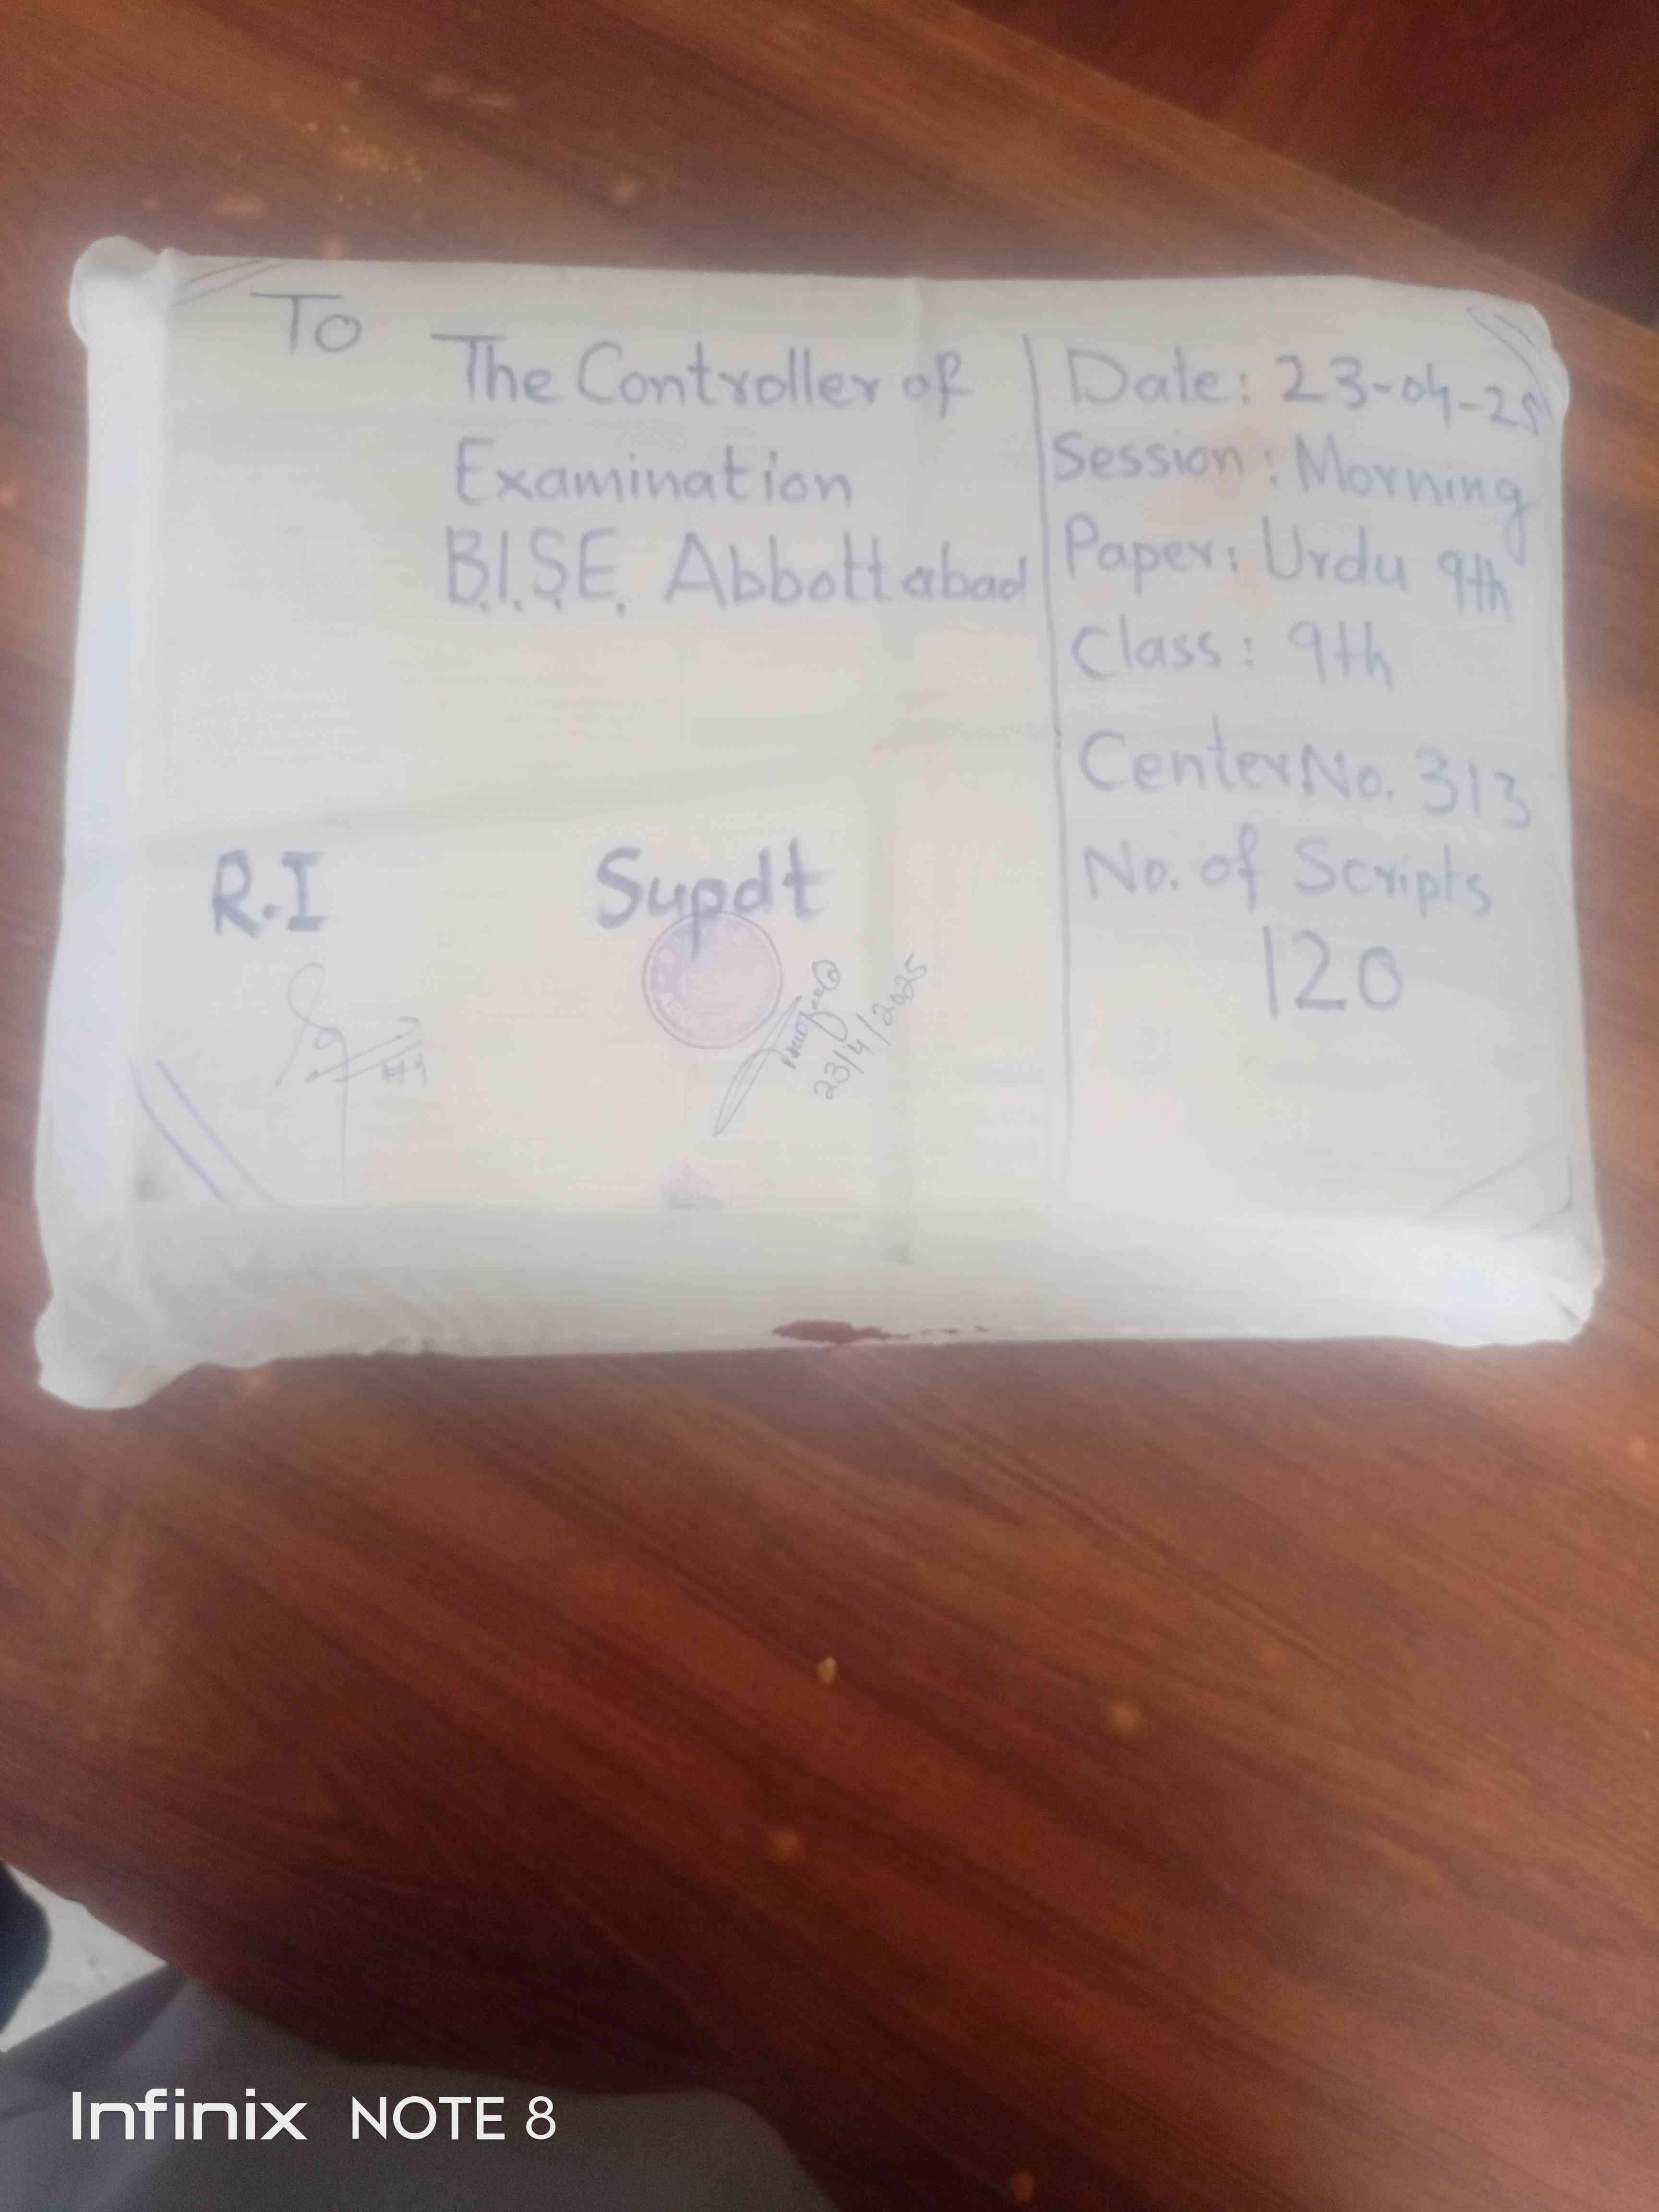 To
The Controller of
Examination
B.I.S.E. Abbottabad
Date: 23-04-25
Session: Morning
Paper: Urdu 9th
Class: 9th
Center No. 313
No. of Scripts
120
R.I
Supdt
23/4/2025
Infinix NOTE 8